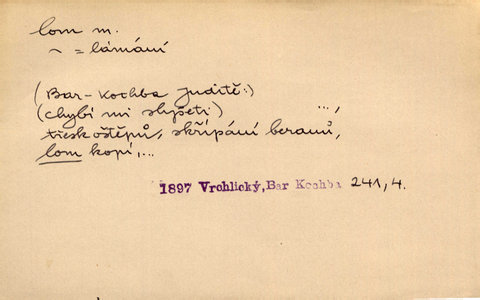 lom m.
~ = lámání
(Bar-Kochba Juditě:)
(chybí mi slyšeti:) ...,
třesk oštěpů, skřípání beranů,
lom kopí,...
1897 Vrchlický, Bar Kochba 241, 4.